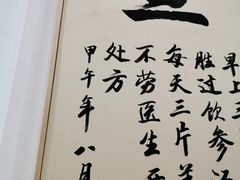 早上三
胜过饮参汤
每天三片姜
不劳医生开
处方
甲午年八月